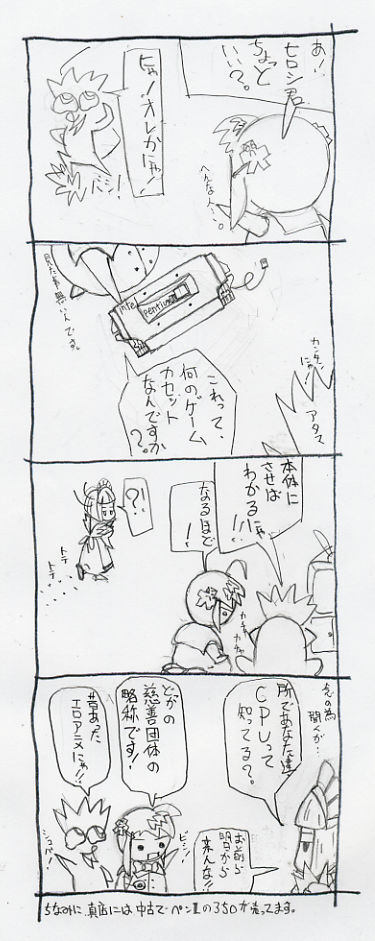 あ！
ヒロシ君
ちょっと
いい？。
ヒャ！オレかにゃ！
バシ！
へんな人…。
見た事無いんです。
intel
pentium
これって、
何のゲーム
カセット
なんですか
？。
カンタン
にゃ！
アタス
本体に
させば
わかる
にゃ
!!!
なるほど
！
?!
トテ
トテ
カチャ
カチャ
念の為
聞くが…
所であなた達
CPUって
知ってる？。
どっかの
慈善団体の
略称です！
昔あった
エロアニメにゃ!!
お前ら
明日から
来んな!!
ビシ！
ちなみに真店には中古でペンⅡの350が売ってます。